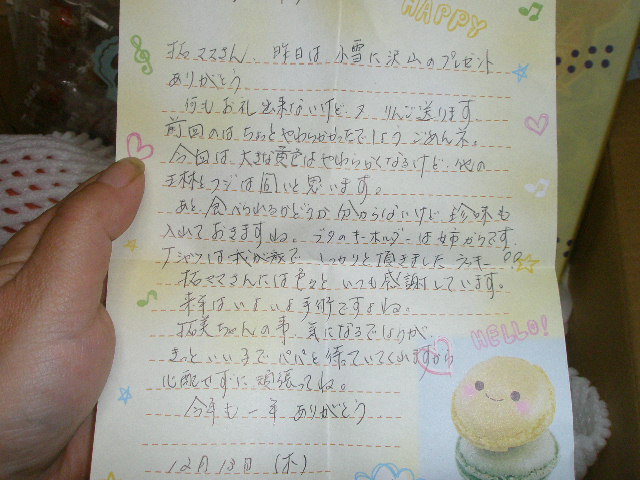 HAPPY
拓ママさん、昨日は小雪に沢山のプレゼント
ありがとう
何もお礼出来ないけど りんご送ります
前回のはちょっとやわらかかったでしょう ごめんネ。
今回は大きな黄色はやわらかくなるけど、他の
王林とフジは固いと思います。
あと食べられるかどうか分からないけど珍味も
入れておきますね。ブタのキーホルダーは姉からです。
Tシャツは我が家で しっかりと頂きました ラッキー!!
拓ママさんには色々といつも感謝しています。
来年はいよいよ手術ですよね。
拓美ちゃんの事 気になるでしょうが
きっといい子でパパと待っていてくれますから
心配せずに頑張ってね。
今年も一年 ありがとう
HELLO!
12月18日 (木)